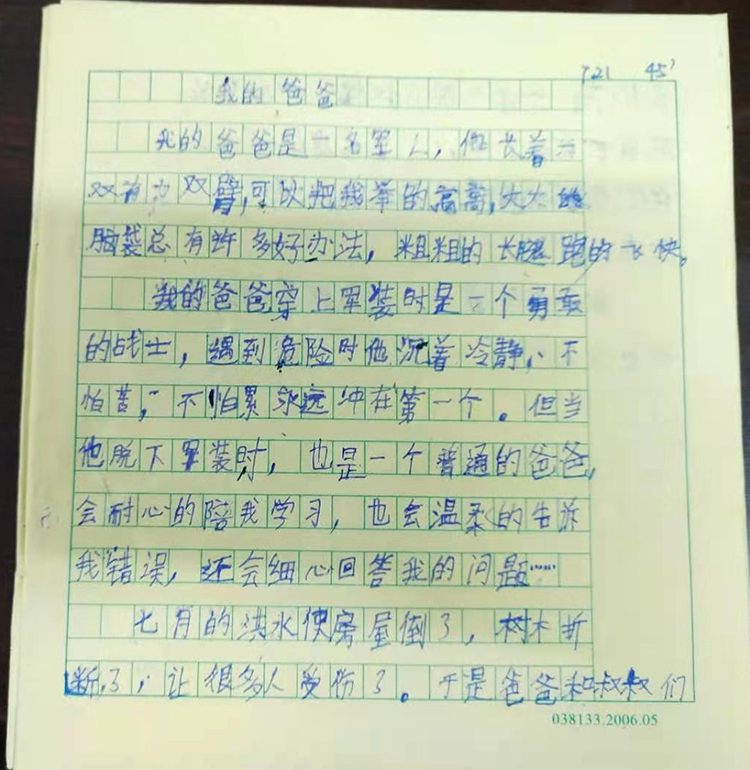 721 45'
我的爸爸
我的爸爸是一名军人,他长着一
双有力双臂,可以把我举的高高,大大的
脑袋总有许多好办法,粗粗的长腿跑的飞快。
我的爸爸穿上军装时是一个勇敢
的战士,遇到危险时他沉着冷静,不
怕苦,不怕累永远冲在第一个。但当
他脱下军装时,也是一个普通的爸爸,
会耐心的陪我学习,也会温柔的告诉
我错误,还会细心回答我的问题……
七月的洪水使房屋倒了,树木折
断了,让很多人受伤了。于是爸爸和叔叔们
038133.2006.05